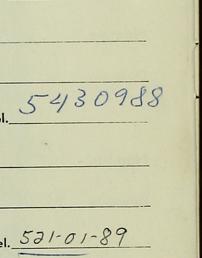 5430988
el.
521-01-89
el.